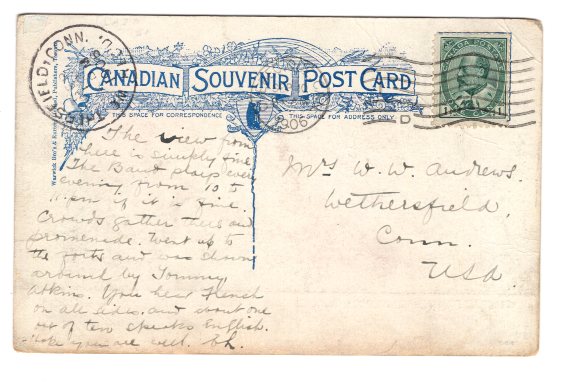 CANADIAN SOUVENIR POST CARD
THIS SPACE FOR CORRESPONDENCE
THIS SPACE FOR ADDRESS ONLY
WETHERSFIELD, CONN.
REC'D.
1906
CANADA POSTAGE
Warwick Bro's & Rutter, Limited, Publishers, Toronto
The view from
here is simply fine
The Band plays every
evening from 10 to
11 p.m. if it is fine
Crowds gather then and
promenade. Went up to
the forts and was shown
around by Tommy
Atkins. You hear French
on all sides, and about one
out of ten speaks English.
Hope you are well.
Mrs W. W. Andrews.
Wethersfield,
Conn.
USA.